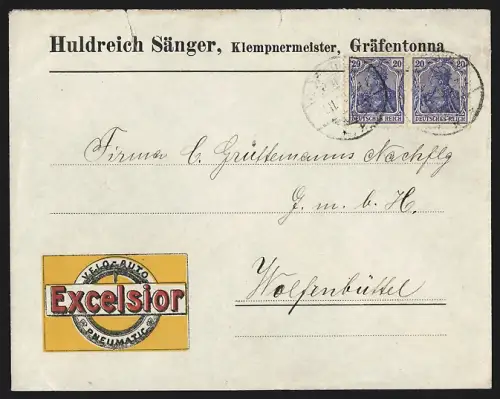 Huldreich Sänger, Klempnermeister, Gräfentonna
20 20 20 20
DEUTSCHES REICH DEUTSCHES REICH
Firma C. Grüttemanns Nachflg
G. m. b. H.
Wolfenbüttel
VELO-AUTO
Excelsior
PNEUMATIC